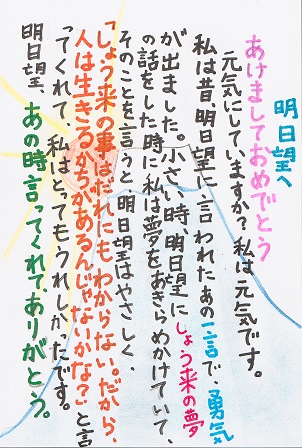 明日望へ
あけましておめでとう
元気にしていますか?私は元気です。
私は昔、明日望に言われたあの一言で、勇気
が出ました。小さい時、明日望にしょう来の夢
の話をした時に私は夢をあきらめかけていて、
そのことを言うと、明日望はやさしく、
「しょう来の事はだれにもわからない。だから、
人は生きるかちがあるんじゃないかな?」と言
ってくれて、私はとってもうれしかったです。
明日望、あの時言ってくれて、ありがとう。